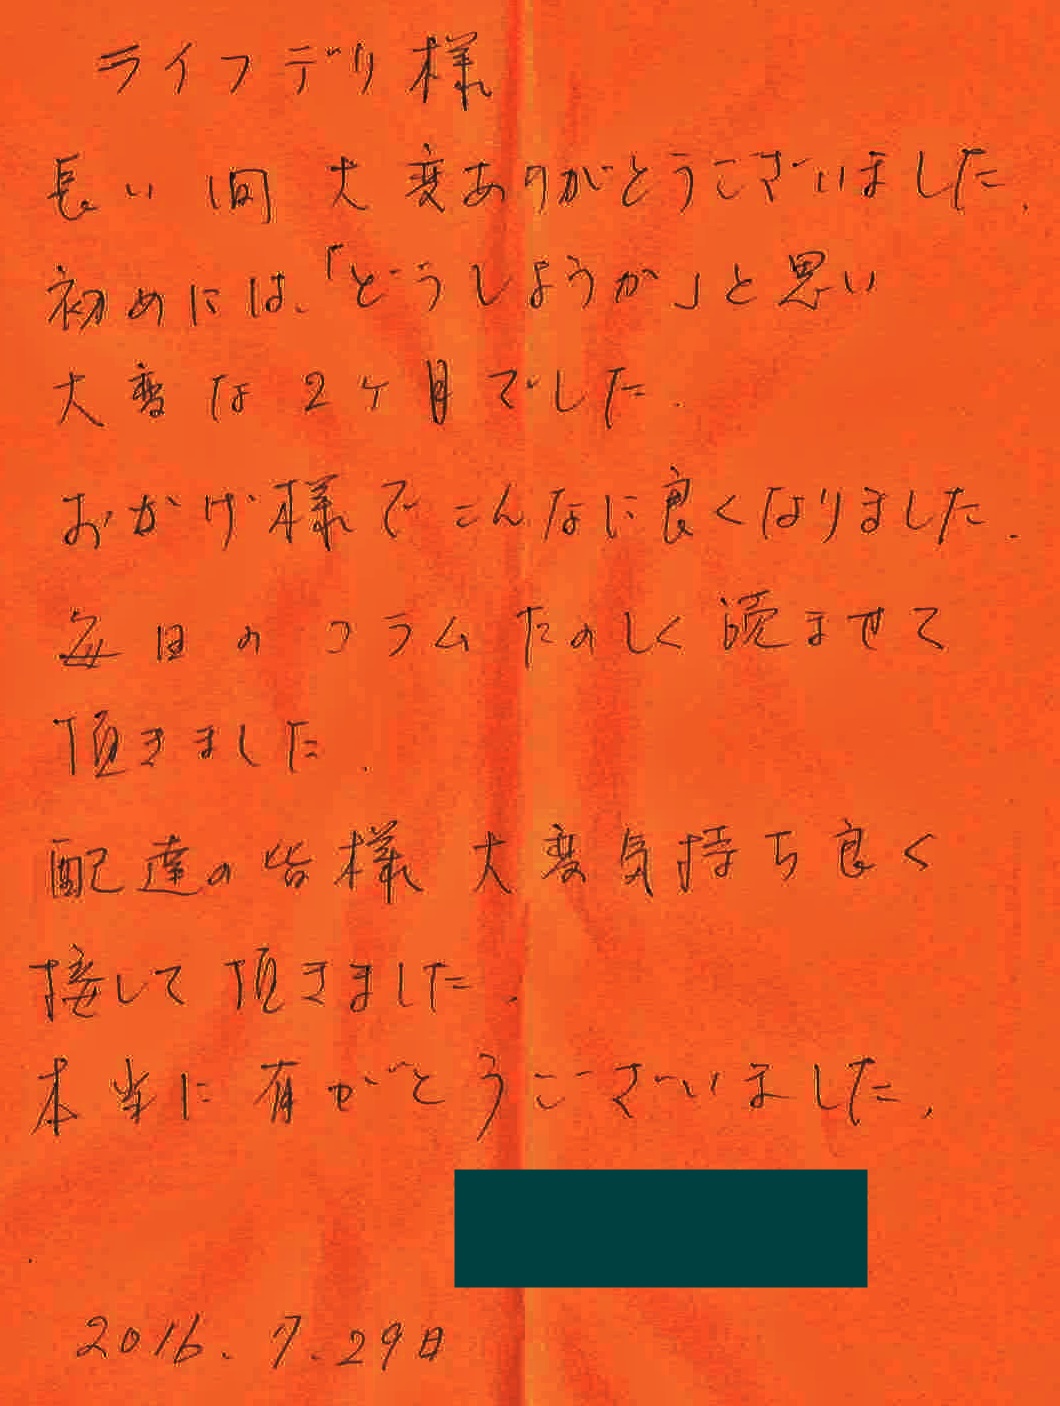 ライフデリ様
長い間 大変ありがとうございました.
初めには、「どうしようか」と思い
大変な2ヶ月でした.
おかげ様でこんなに良くなりました.
毎日のコラムたのしく読ませて
頂きました.
配達の皆様 大変気持ち良く
接して頂きました.
本当に有がとうございました.
2016.7.29日